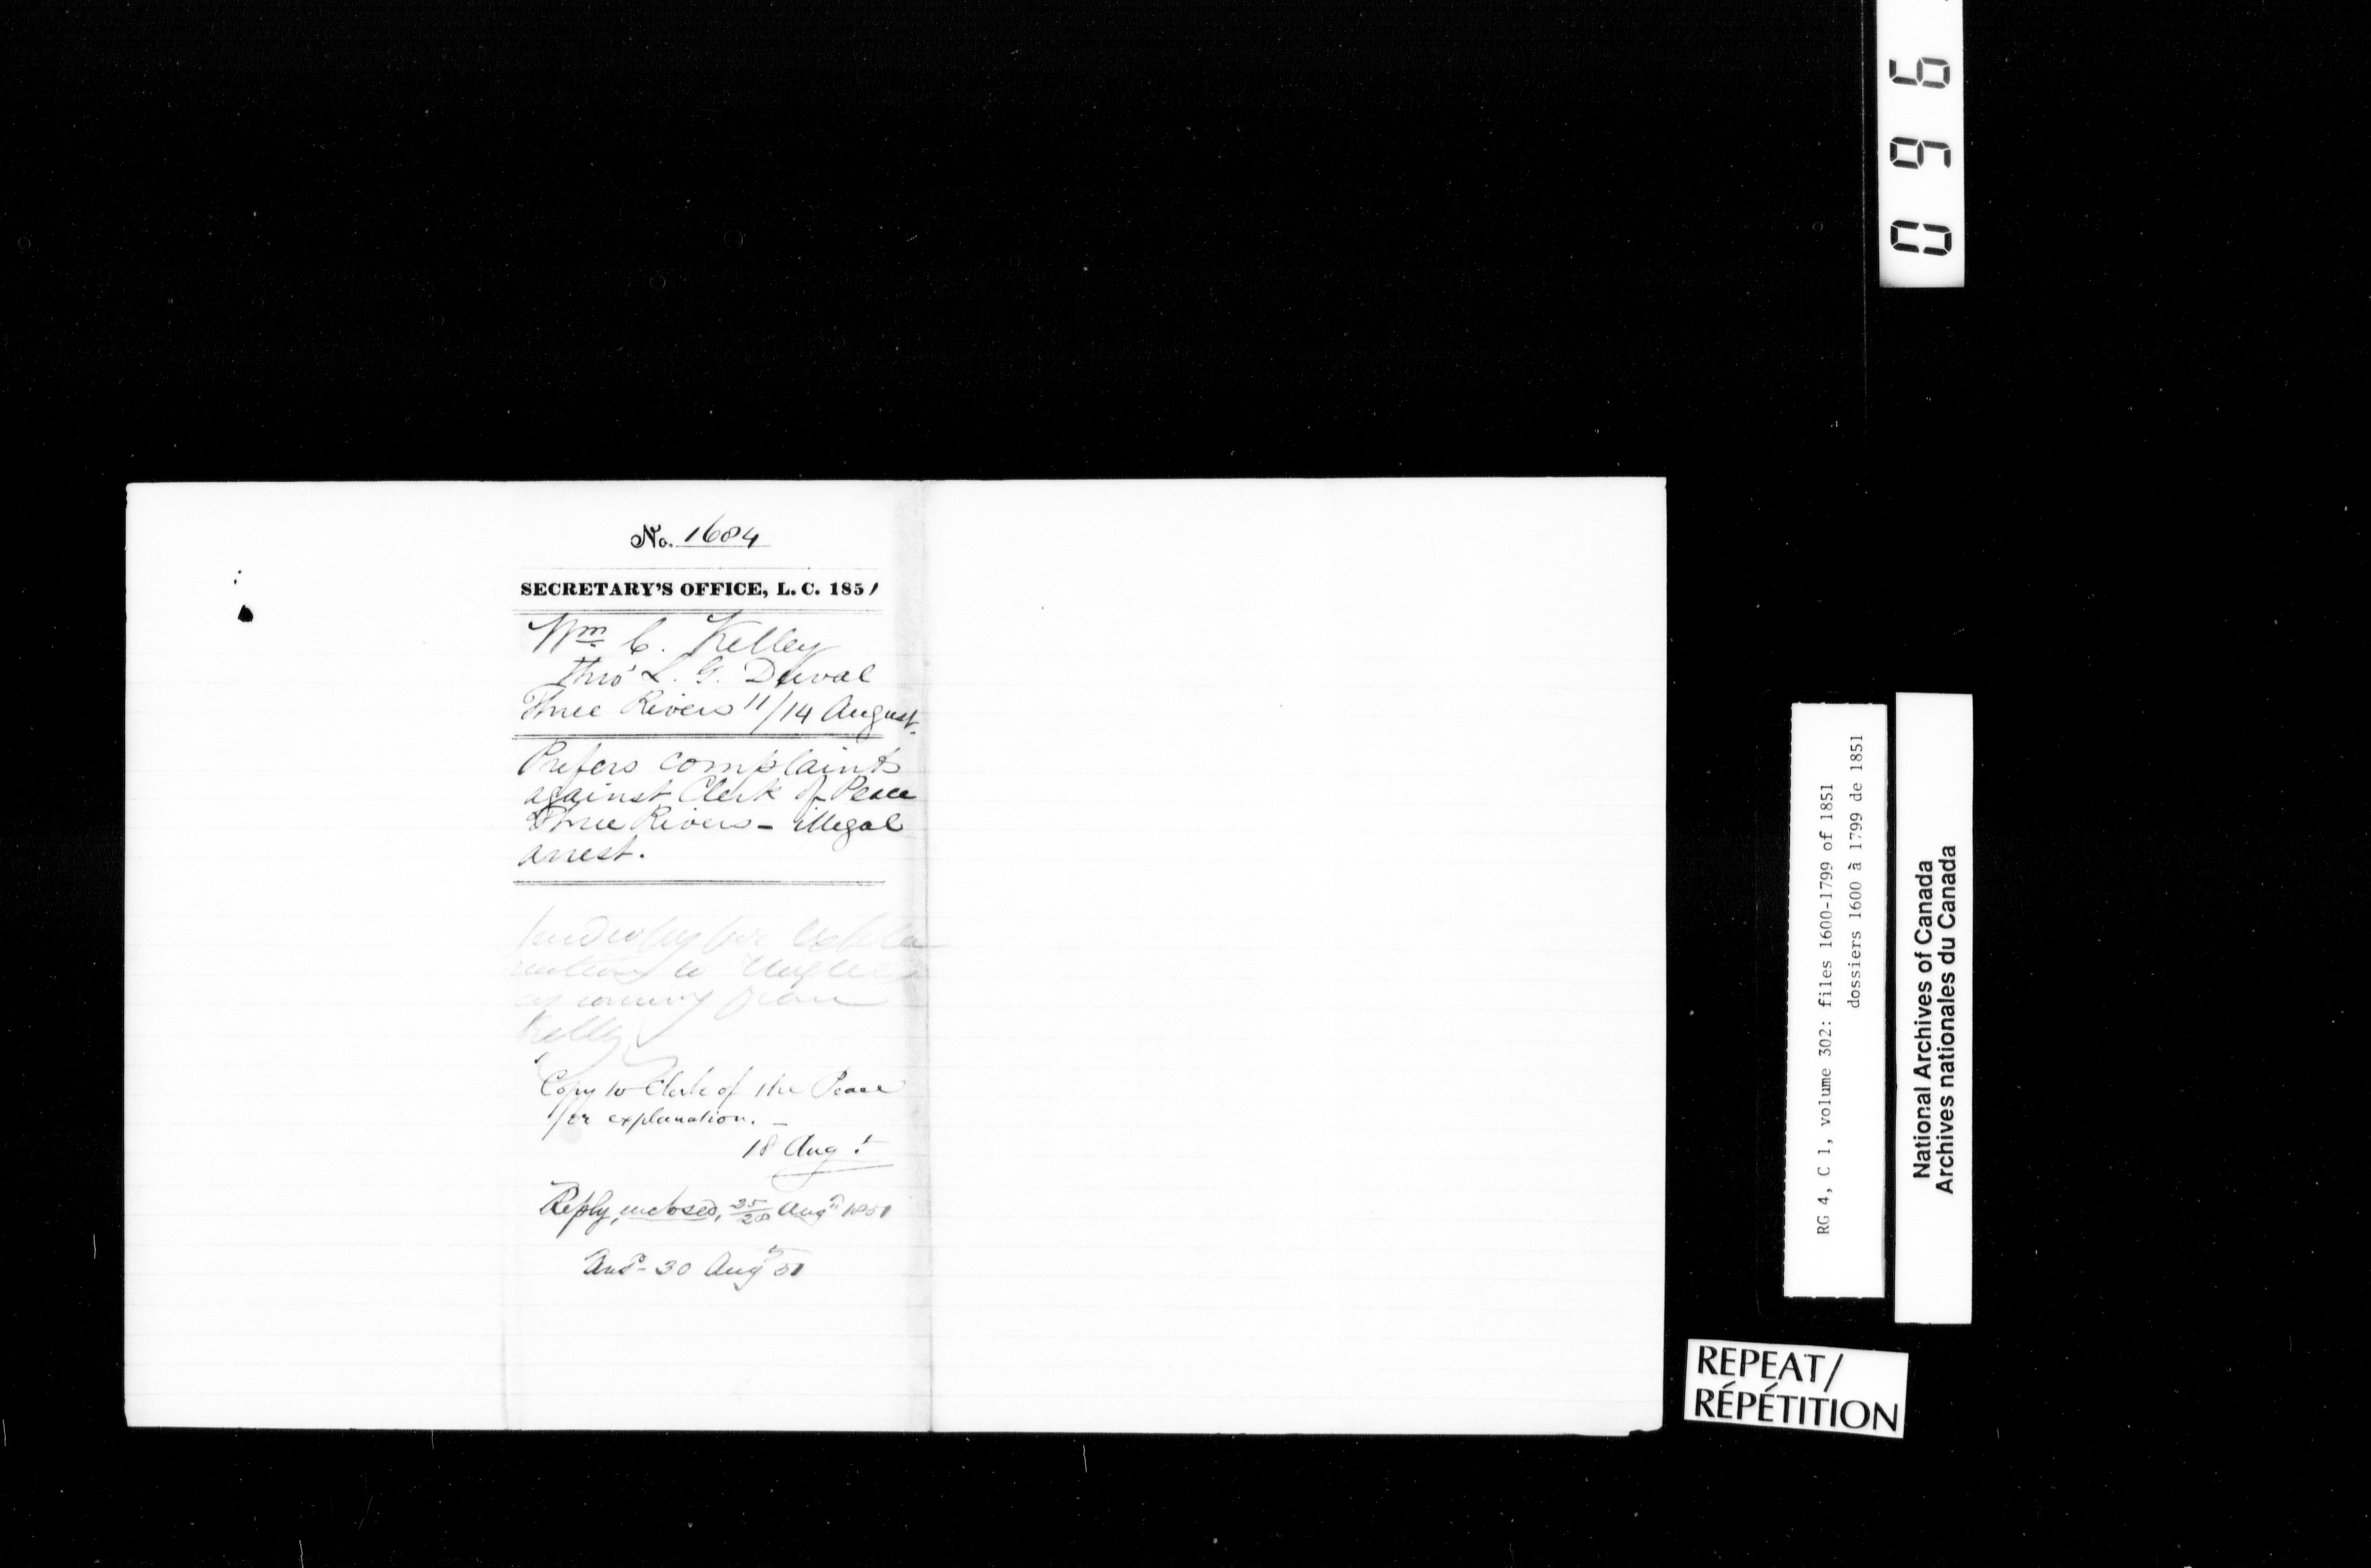 No. 1684
SECRETARY'S OFFICE, L. C. 1851
Wm C. Kelley
thro' L. G. Duval
Three Rivers 11/14 August.
Prefers complaints
against Clerk of Peace
Three Rivers - illegal
arrest.
as coming from
Kelly
Copy to Clerk of the Peace
for explanation. -
18 Augt
Reply, enclosed, 25/28 Augt 1851
Ansd 30 Augt 51
096
RG 4, C 1, volume 302: files 1600-1799 of 1851
dossiers 1600 à 1799 de 1851
National Archives of Canada
Archives nationales du Canada
REPEAT/
RÉPÉTITION